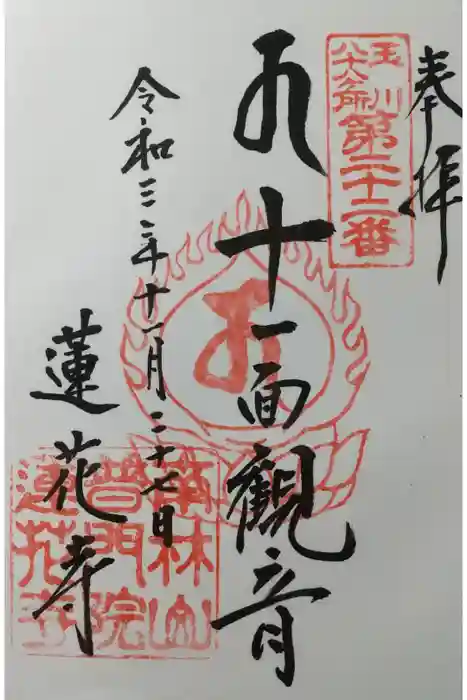 奉拝
玉川
八十八ヶ所
第二十二番
十一面觀音
令和三年十一月二十七日
蓮花寺
林山
普門院
蓮花寺